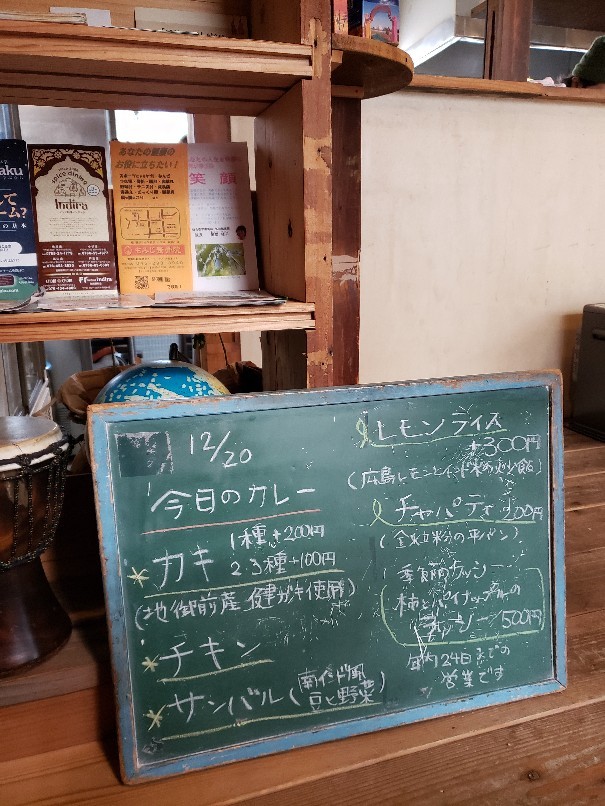 Indira
あなたの健康の
お役に立ちたい!
笑顔
12/20
今日のカレー
カキ 1種+200円
2.3種+100円
(地御前産 健ガキ使用)
チキン
サンバル(南インド風
豆と野菜)
レモンライス
+300円
(広島レモンとインド米の炒飯)
チャパティ 200円
(全粒粉の平パン)
季節のラッシー
柿とパイナップルの
ラッシー/500円
年内24日までの
営業です